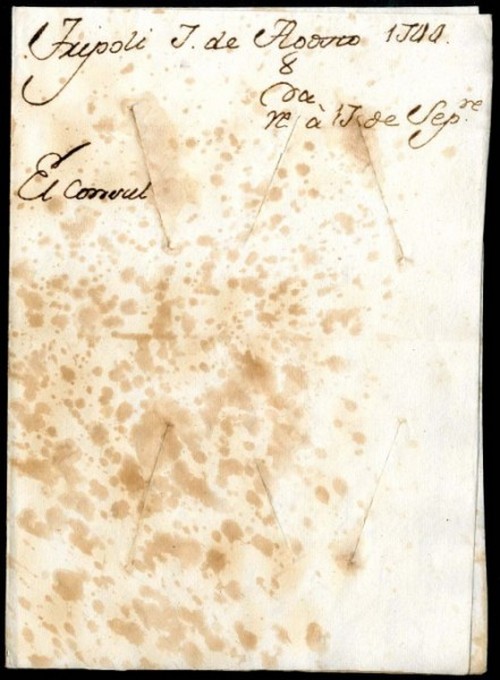 Tripoli 7. de Agosto 1744.
8
Da
re à 17 de Sepre
El Consul